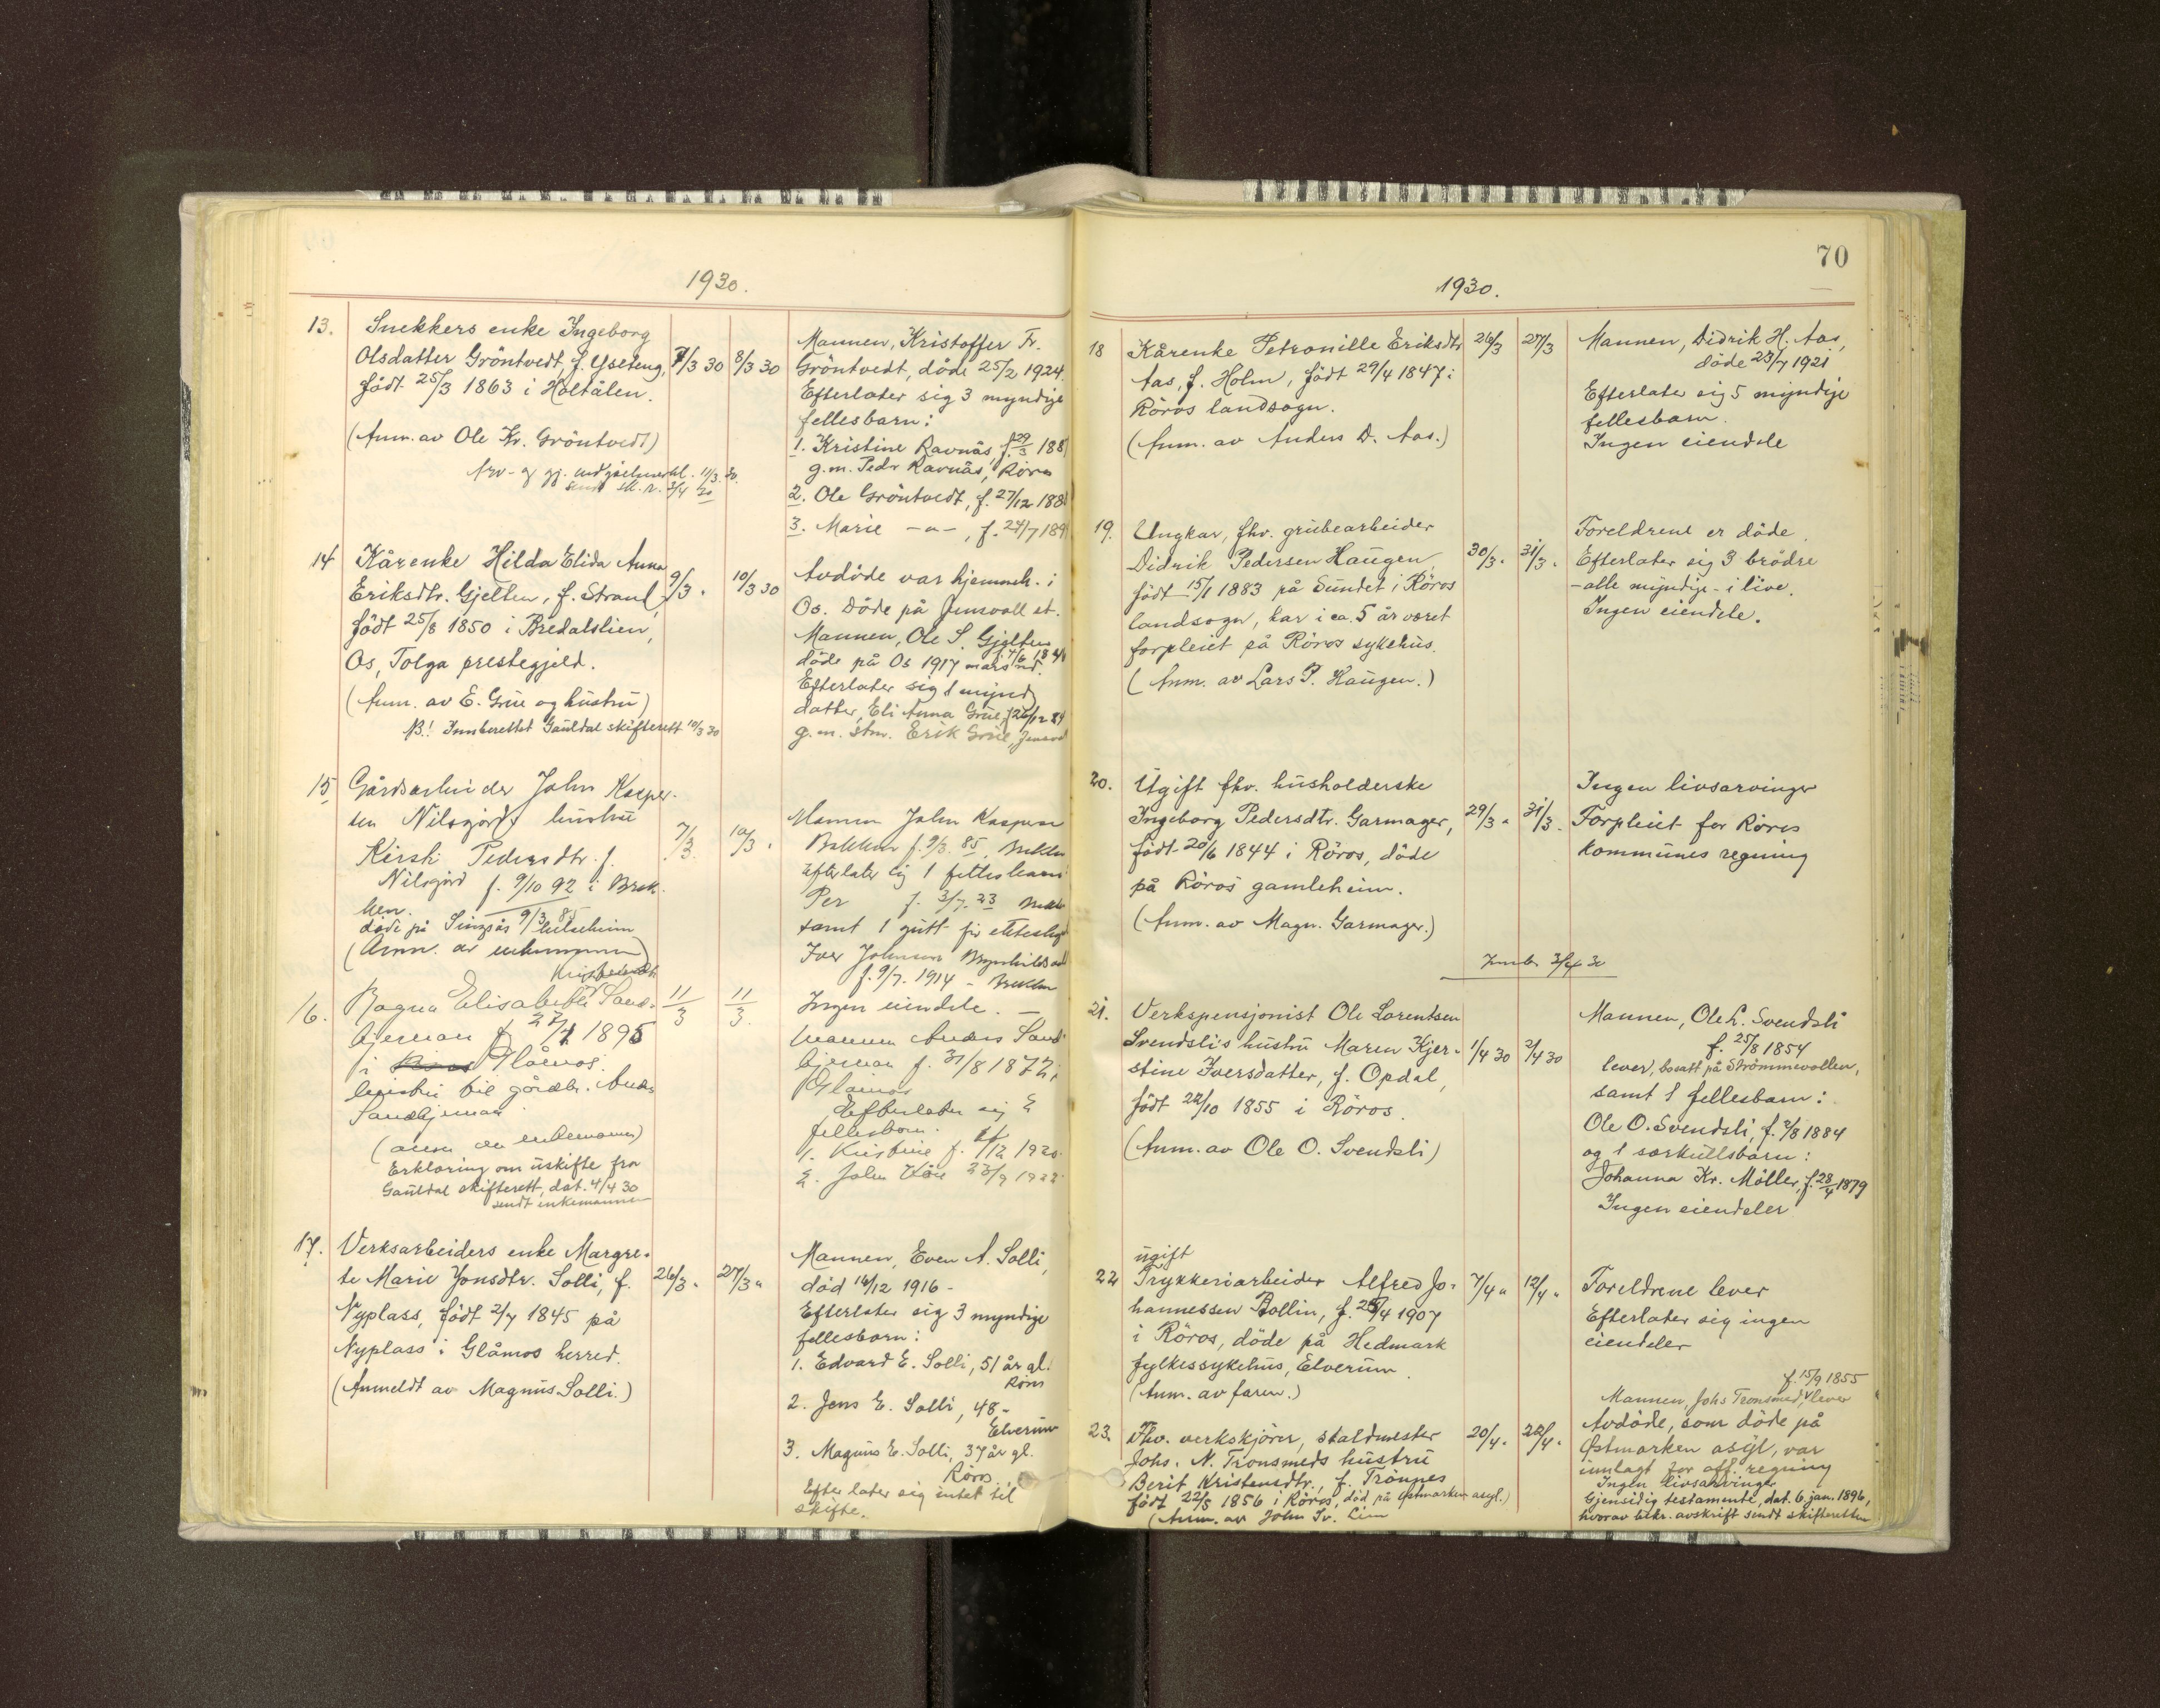 1930.
13. Snekkers enke Ingeborg
Olsdatter Gröntvedt, f. Ysteng, 7/3 30 8/3 30
födt 25/3 1863 i Holtålen.
(Anm. av Ole Kr. Gröntvedt)
Mannen, Kristoffer Tr.
Gröntvedt, döde 25/2 1924.
Efterlater sig 3 myndige
fellesbarn:
1. Kristine Ravnås, f. 29/3 188
g.m. Peder Ravnås, Röros
2. Ole Gröntvedt, f. 27/12 188
3. Marie -"-, f. 24/7 189
14 Kårenke Hilda Elida Anna
Eriksdtr. Gjelten, f. Strand, 9/3 " 10/3 30
födt 25/8 1850 i Bredalslien,
Os, Tolga prestegjeld.
(Anm. av E. Grue og hustru)
NB! Innberettet Gauldal skifterett 10/3 30
Avdöde var hjemmeh. i
Os. Döde på Jensvoll st.
Mannen, Ole S. Gjelten
döde på Os 1917 mars md.
Efterlater sig 1 mynd
datter, Eli Anna Grue, f 26/12 89
g.m. stm. Erik Grue, Jensvol
15 Gårdsarbeider John Kasper-
sen Nilsgjords hustru 7/3 10/3 "
Kirsti Pedersdtr. f.
Nilsgjord f. 9/10 92 i Brek-
ken.
döde på Singsås hvileheim
(Anm. av enkemannen)
Mannen John Kaspersen
Bekken f. 9/3 85, Brekken
efterlater sig 1 fellesbarn
Per f. 3/7 23 Brekken
samt 1 gutt før ekteskap
Iver Johnsen
f. 9/7. 1914 - Brekken
Ingen eiendele. -
16. Ragna Elisabeth Kristensdtr. Sand- 11/3 11/3.
bjernan f 27/1 1895
i Glåmos.
hustru til gårdbr. Anders
Sandbjernan
(anm av enkemannen)
Erklæring om uskifte fra
Gauldal skifterett, dat. 4/4 30
sendt enkemannen
Mannen Anders Sand-
bjernan f. 31/8 1872 i
Glåmos
Efterlater sig 2
fellesbarn.
1. Kristine f. 1/12 1920
2. John Kåre 23/9 1922
17. Verksarbeiders enke Margre-
te Marie Jonsdtr. Solli, f. 26/3 " 27/3 "
Nyplass, födt 2/7 1845 på
Nyplass i Glåmos herred.
(Anmeldt av Magnus Solli.)
Mannen, Even A. Solli,
död 16/12 1916 -
Efterlater sig 3 myndige
fellesbarn:
1. Edvard E. Solli, 51 år gl.
Röros
2. Jens E. Solli, 48 -
Elverum
3. Magnus E. Solli, 37 år gl.
Röros.
Efterlater sig intet til
skifte.
70
1930.
18 Kårenke Petronille Eriksdtr 26/3 27/3
Aas, f. Holm, födt 29/4 1847 i
Röros landsogn.
(Anm. av Anders D. Aas.)
Mannen, Didrik H. Aas,
döde 23/7 1921
Efterlater sig 5 myndige
fellesbarn.
Ingen eiendele
19. Ungkar, fhv. grubearbeider
Didrik Pedersen Haugen, 30/3 " 31/3 "
födt 15/1 1883 på Sundet i Röros
landsogn, har i ca. 5 år været
forpleiet på Röros sykehus.
(Anm. av Lars P. Haugen.)
Foreldrene er döde.
Efterlater sig 3 brödre
- alle myndige - i live.
Ingen eiendele.
20. Ugift fhv. husholderske
Ingeborg Pedersdtr. Garmager, 29/3 " 31/3 "
födt 20/6 1844 i Röros, döde
på Röros gamleheim.
(Anm. av Magn. Garmager.)
Ingen livsarvinger
Forpleiet for Röros
kommunes regning
Innber. 3/4 30
21. Verkspensjonist Ole Lorentsen
Svendsli's hustru Maren Kjer- 1/4 30 2/4 30
stine Iversdatter, f. Opdal,
födt 22/10 1855 i Röros.
(Anm. av Ole O. Svendsli)
Mannen, Ole L. Svendsli
f. 25/8 1854
lever, bosatt på Strömmevollen,
samt 1 fellesbarn:
Ole O. Svendsli, f. 2/8 1884
og 1 særkullsbarn:
Johanna Kr. Möller, f. 28/4 1879
Ingen eiendeler
ugift
22 Trykkeriarbeider Alfred Jo- 7/4 " 12/4 "
hannessen Bollin, f. 25/4 1907
i Röros, döde på Hedmark
fylkessykehus, Elverum.
(Anm. av faren.)
Foreldrene lever
Efterlater sig ingen
eiendeler
23. Fhv. verkskjörer, staldmester 20/4 " 22/4 "
Johs. N. Tronsmeds hustru
Berit Kristensdtr., f. Trönnes
födt 22/5 1856 i Röros, död på Östmarken asyl.)
(Anm. av John Tr. Lien
f. 15/9 1855
Mannen, Johs Tronsmed, lever
Avdöde, som döde på
Östmarken asyl, var
innlagt for off. regning
Ingen livsarvinger
Gjensidig testamente, dat. 6. jan. 1896,
hvorav bekr. avskrift sendt skifteretten